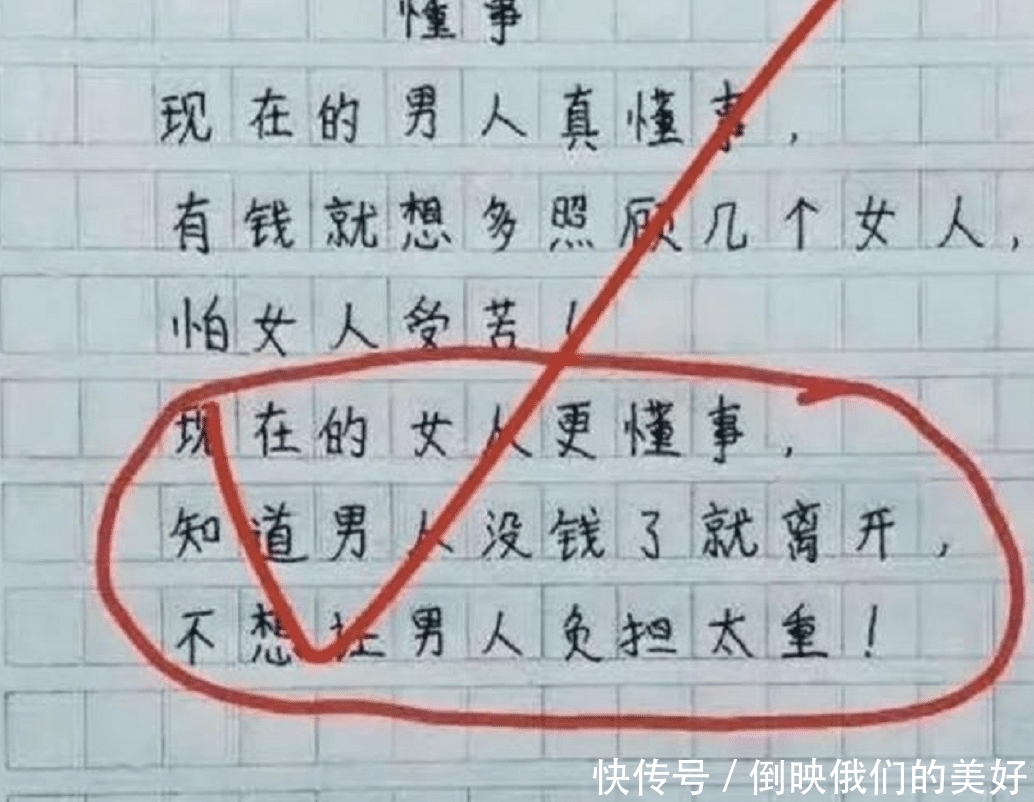 懂事
现在的男人真懂事，
有钱就想多照顾几个女人，
怕女人受苦！
现在的女人更懂事，
知道男人没钱了就离开，
不想让男人负担太重！
快传号 / 倒映俄们的美好